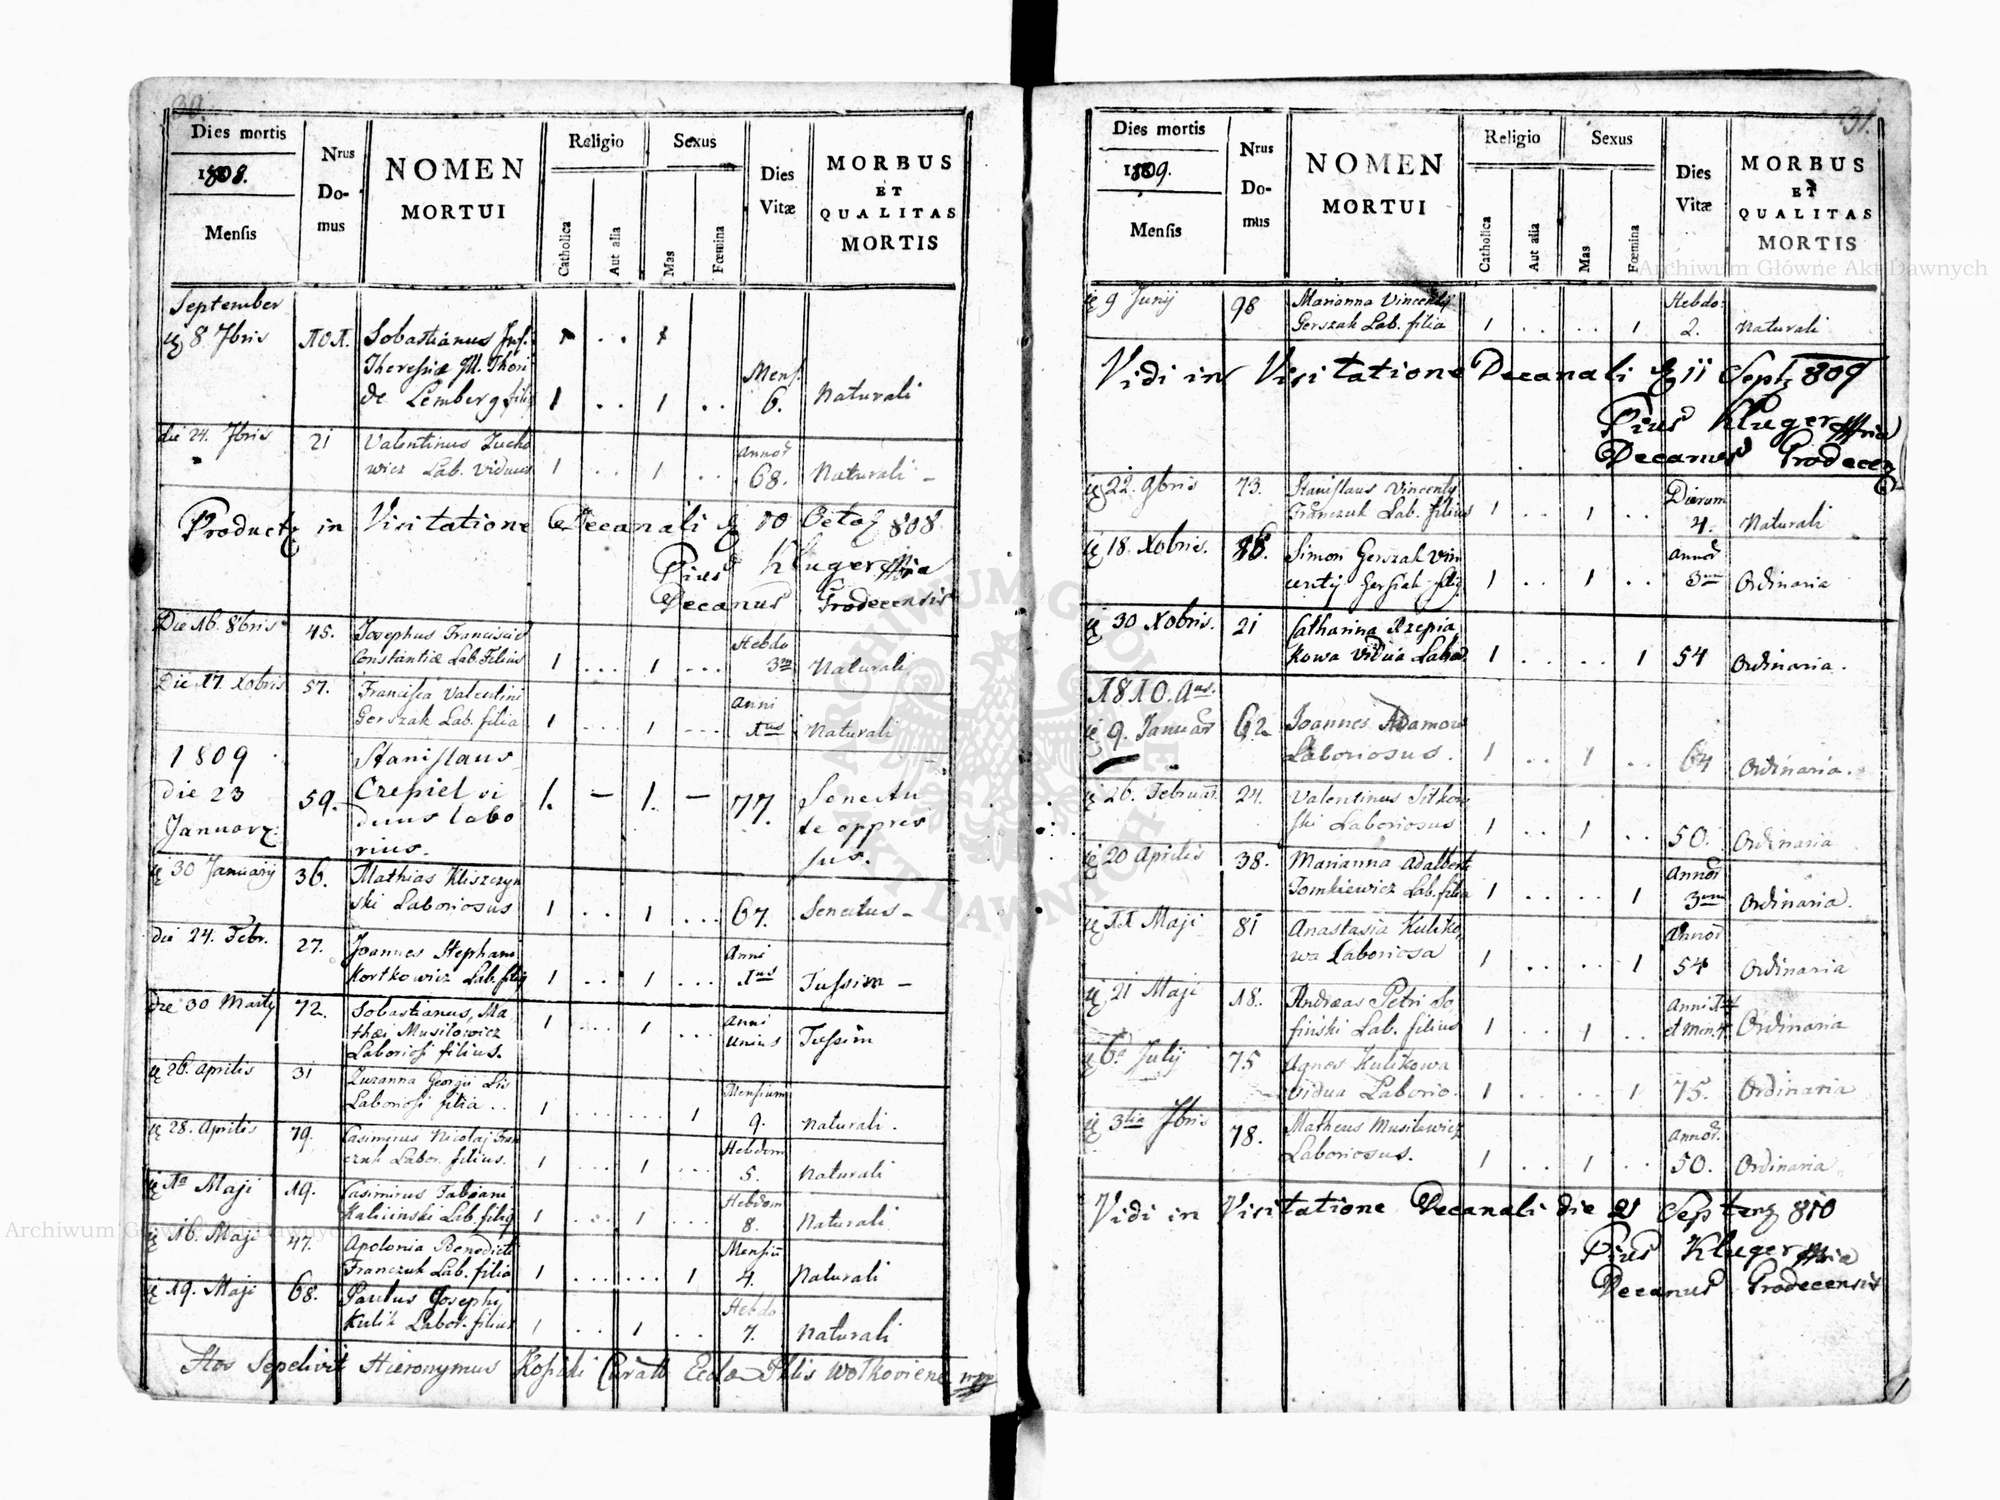 30.
Dies mortis
1808.
Mensis
Nrus
Do-
mus
NOMEN
MORTUI
Religio
Catholica
Aut alia
Sexus
Mas
Fœmina
Dies
Vitæ
MORBUS
ET
QUALITAS
MORTIS
September
8 7bris 101. Sobastianus
Theresiæ
de Lemberg 1 .. 1 .. Mens. 6. Naturali
die 24. 7bris 21 Valentinus Zucho
wicz Lab. Viduus 1 .. 1 ... annor 68. Naturali
Product in Visitatione Decanali 10 808
Pius Kluger
Decanus Grodecensis
Die 16. 8bris 45. Josephus Francisci
Constantiæ Lab. Filius 1 ... 1 ... Hebdo 3 Naturali
Die 17. Xobris 57. Francisca Valentini
Gerszak Lab. filia 1 ... 1 ... Anni 1us Naturali
1809 Stanislaus
die 23 59. Crepiel vi
Januarz: duus labo
rius. 1. – 1. – 77. Senectu
te oppres
sus.
30 Januarij 36. Mathias Kliszczyn
ski Laboriosus 1 .. 1 ... 67. Senectus –
die 24. Febr. 27. Joannes Stephani
Kortkowicz Lab. filig 1 .. 1 ... Anni 1us Tussim –
die 30 Martij 72. Sobastianus, Ma
thæi Musilowicz
Laboriosi filius. 1 ... 1 ... Anni unius Tussim
26. aprilis 31 Zuzanna Georgii Lis
Laboriosi filia .. 1 ... ... 1 Mensium 9. Naturali.
28. Aprilis 79. Casimirus Nicolaj Fran
czuk Labor. filius. 1 ... 1 ... Hebdom 5. Naturali
1a Maji 19. Casimirus Fabiani
Kalicinski Lab. filig 1 ... 1 ... Hebdom 8. Naturali
16. Maji 47. Apolonia Benedicti
Franczuk Lab. filia 1 ... ... 1 Mensiu 4. Naturali
19. Maji 68. Paulus Josephi
Kulik Labor. filius 1 .. 1 .. Hebdo 7. Naturali
Hos Sepelivit Hieronymus
31.
Dies mortis
1809.
Mensis
Nrus
Do-
mus
NOMEN
MORTUI
Religio
Catholica
Aut alia
Sexus
Mas
Fœmina
Dies
Vitæ
MORBUS
ET
QUALITAS
MORTIS
9 Junij 98 Marianna Vincentij
Gerszak Lab. filia 1 .. .. 1 Hebdo: 2. Naturali
Vidi in Visitatione Decanali 11 Septz 809
Pius Kluger
Decanus
22. 9bris 73. Stanislaus Vincenty
Franczuk Lab. filius 1 .. 1 .. Dierum 4. Naturali
18. Xobris. 86. Simon Gerszak Vin
centij Gerszak filig 1 .. 1 .. annor 3 Ordinaria
30 Xobris. 21 Catharina Rzepia
kowa vidua Labor 1 .. .. 1 54 Ordinaria.
1810. Aus.
9. Januar 62 Joannes Adamow
Laboriosus. 1 .. 1 .. 64 Ordinaria.
26. Februar. 24. Valentinus Sitkow
ski Laboriosus 1 .. 1 .. 50. Ordinaria
20 Aprilis 38. Marianna Adalberti
Tomkiewicz Lab. filia 1 .. .. 1 Annor 3 Ordinaria.
11 Maji 81 Anastasia Kuliko
wa Laboriosa 1 .. .. 1 Annor 54 Ordinaria
21 Maji 18. Andreas Petri So
finski Lab. filius 1 .. 1 .. Anni 1
et Men. 4. Ordinaria
6a July 75 Agnes Kulikowa
vidua Laborio. 1 .. .. 1 75. Ordinaria
3tia 7bris 78. Matheus Musilewicz
Laboriosus. 1 .. 1 .. annor. 50. Ordinaria.
Vidi in Visitatione Decanali die 21 810
Pius Kluger
Decanus Grodecensis
Archiwum Główne Akt Dawnych
Archiwum Główne Akt Dawnych
ARCHIWUM GŁÓWNE AKT DAWNYCH